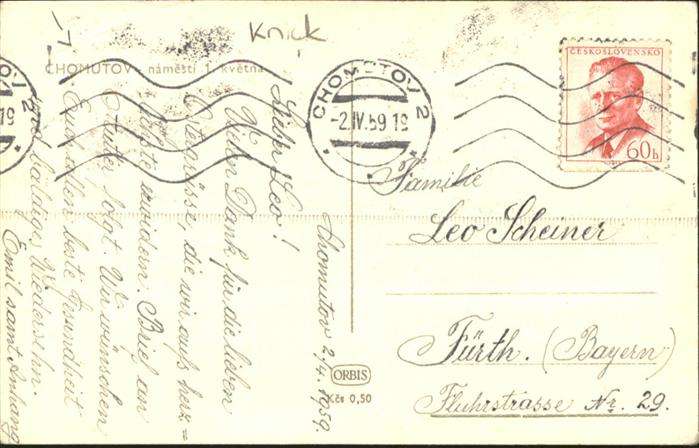 Knick
CHOMUTOV - náměstí 1. května
CHOMUTOV 2
-2.IV.59 19
ČESKOSLOVENSKO
60 h
OV 2
19
Chomutov 2/4. 1959.
Lieber Leo!
Vielen Dank für die lieben
Ostergrüsse, die wir aufs herz=
lichste erwidern. Brief an
folgt. Wir wünschen
Euch allen beste Gesundheit
und baldiges Wiederseh'n.
Emil samt Anhang
Familie
Leo Scheiner
Fürth. (Bayern)
Fluhrstrasse Nr. 29.
ORBIS
Kčs 0,50